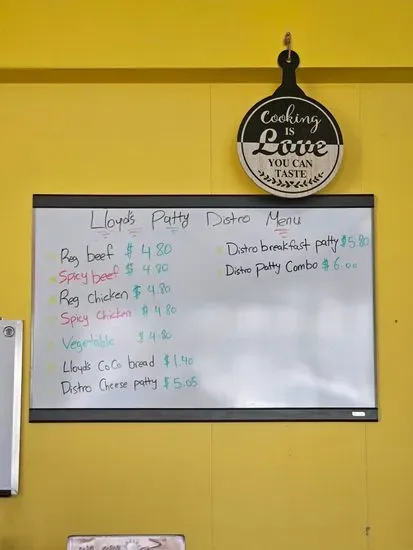 Cooking
IS
Love
YOU CAN
TASTE
Lloyd's Patty Distro Menu
Reg beef $ 4.80
Spicy beef $ 4.80
Reg chicken $ 4.80
Spicy Chicken $ 4.80
Vegetable $ 4.80
Lloyd's CoCo bread $ 1.40
Distro Cheese patty $ 5.05
Distro breakfast patty $ 5.80
Distro Patty Combo $ 6.00